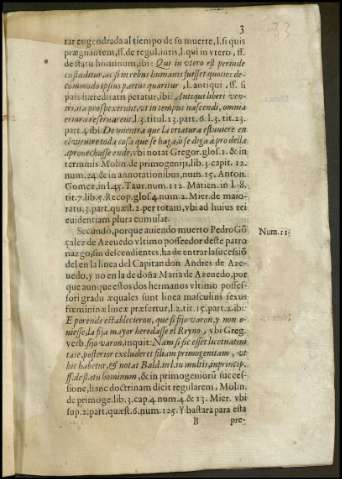 3
tar engendrada al tiempo de su muerte, l. si quis
prægnantem, ff. de regul. iuris, l. qui in vtero, ff.
de statu hominum, ibi: Qui in vtero est perinde
custoditur, ac si in rebus humanis fuisset quoties de
commodo ipsius partus quæritur, l. antiqui, ff. si
pars hæreditatis petatur, ibi: Antiqui libero ven-
tri ita prospexerunt, vt in tempus nascendi, omnia
ei iura reseruarent, l. 3. titul. 23. part. 6. l. 3. tit. 23.
part. 4. ibi: De mientra que la criatura estuuiere en
el vientre toda cosa que se haga, o se diga a pro della
aprouechasse ende, vbi notat Gregor. glos. 1. & in
terminis Molin. de primogenijs, lib. 3. capit. 12.
num. 24. & in annotationibus, num. 15. Anton.
Gomez, in l. 45. Taur. num. 112. Matien. in l. 8.
tit. 7. lib. 5. Recop. glos. 4. num. 2. Mier. de maio-
ratu, 3. part. quæst. 2. per totam, vbi ad huius rei
euidentiam plura cumulat.
Segundo, porque auiendo muerto Pedro Gõ
çalez de Azeuedo vltimo posseedor deste patro
nazgo sin descendientes, ha de entrar la sucessiõ
del en la linea del Capitan don Andres de Aze-
uedo, y no en la de doña Maria de Azeuedo, por
que aunque estos dos hermanos vltimo posses-
sori gradu æquales sunt linea masculini sexus
fœmininæ lineæ præfertur, l. 2. tit. 15. part. 2. ibi:
E por ende establecieron, que si fijo varon, y non o-
uiesse, la fija mayor heredasse el Reyno, vbi Greg.
verb. fijo varon, inquit: Nam si sic esset licet natus
tarde, posterior excluderet filiam primogenitam, vt
hic habetur, & notat Bald. in l. in multis, in princip.
ff. de statu hominum, & in primogeniorũ succes-
sione, hanc doctrinam dicit regularem, Molin.
de primoge. lib. 3. cap. 4. num. 4. & 13. Mier. vbi
sup. 2. part. quæst. 6. num. 125. Y bastara para esta
Num. 11
B pre-